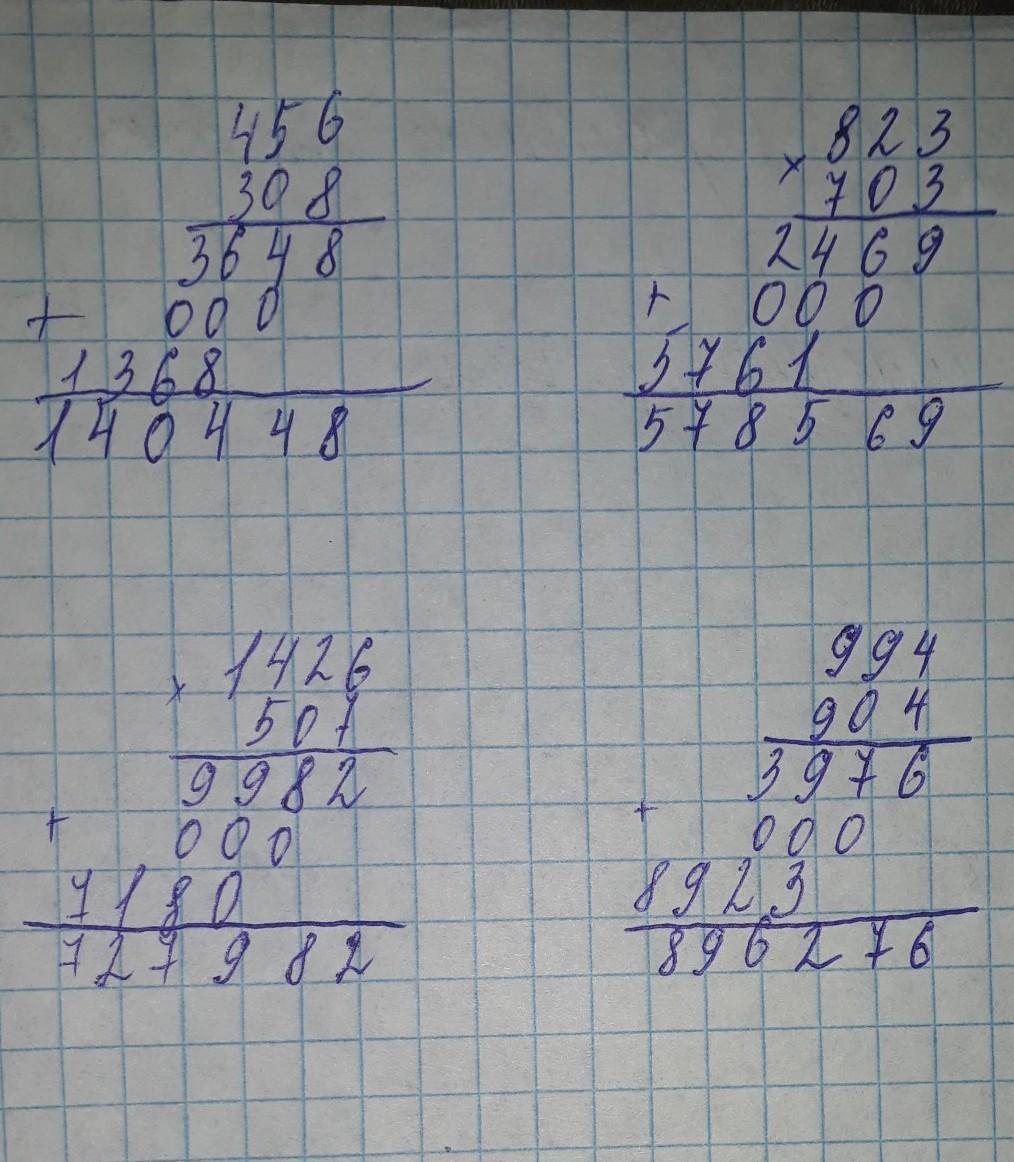 456
308
3648
+ 000
1368
140448
× 823
703
2469
+ 000
5761
578569
× 1426
507
9982
+ 000
7180
727982
994
904
3976
+ 000
8923
896276